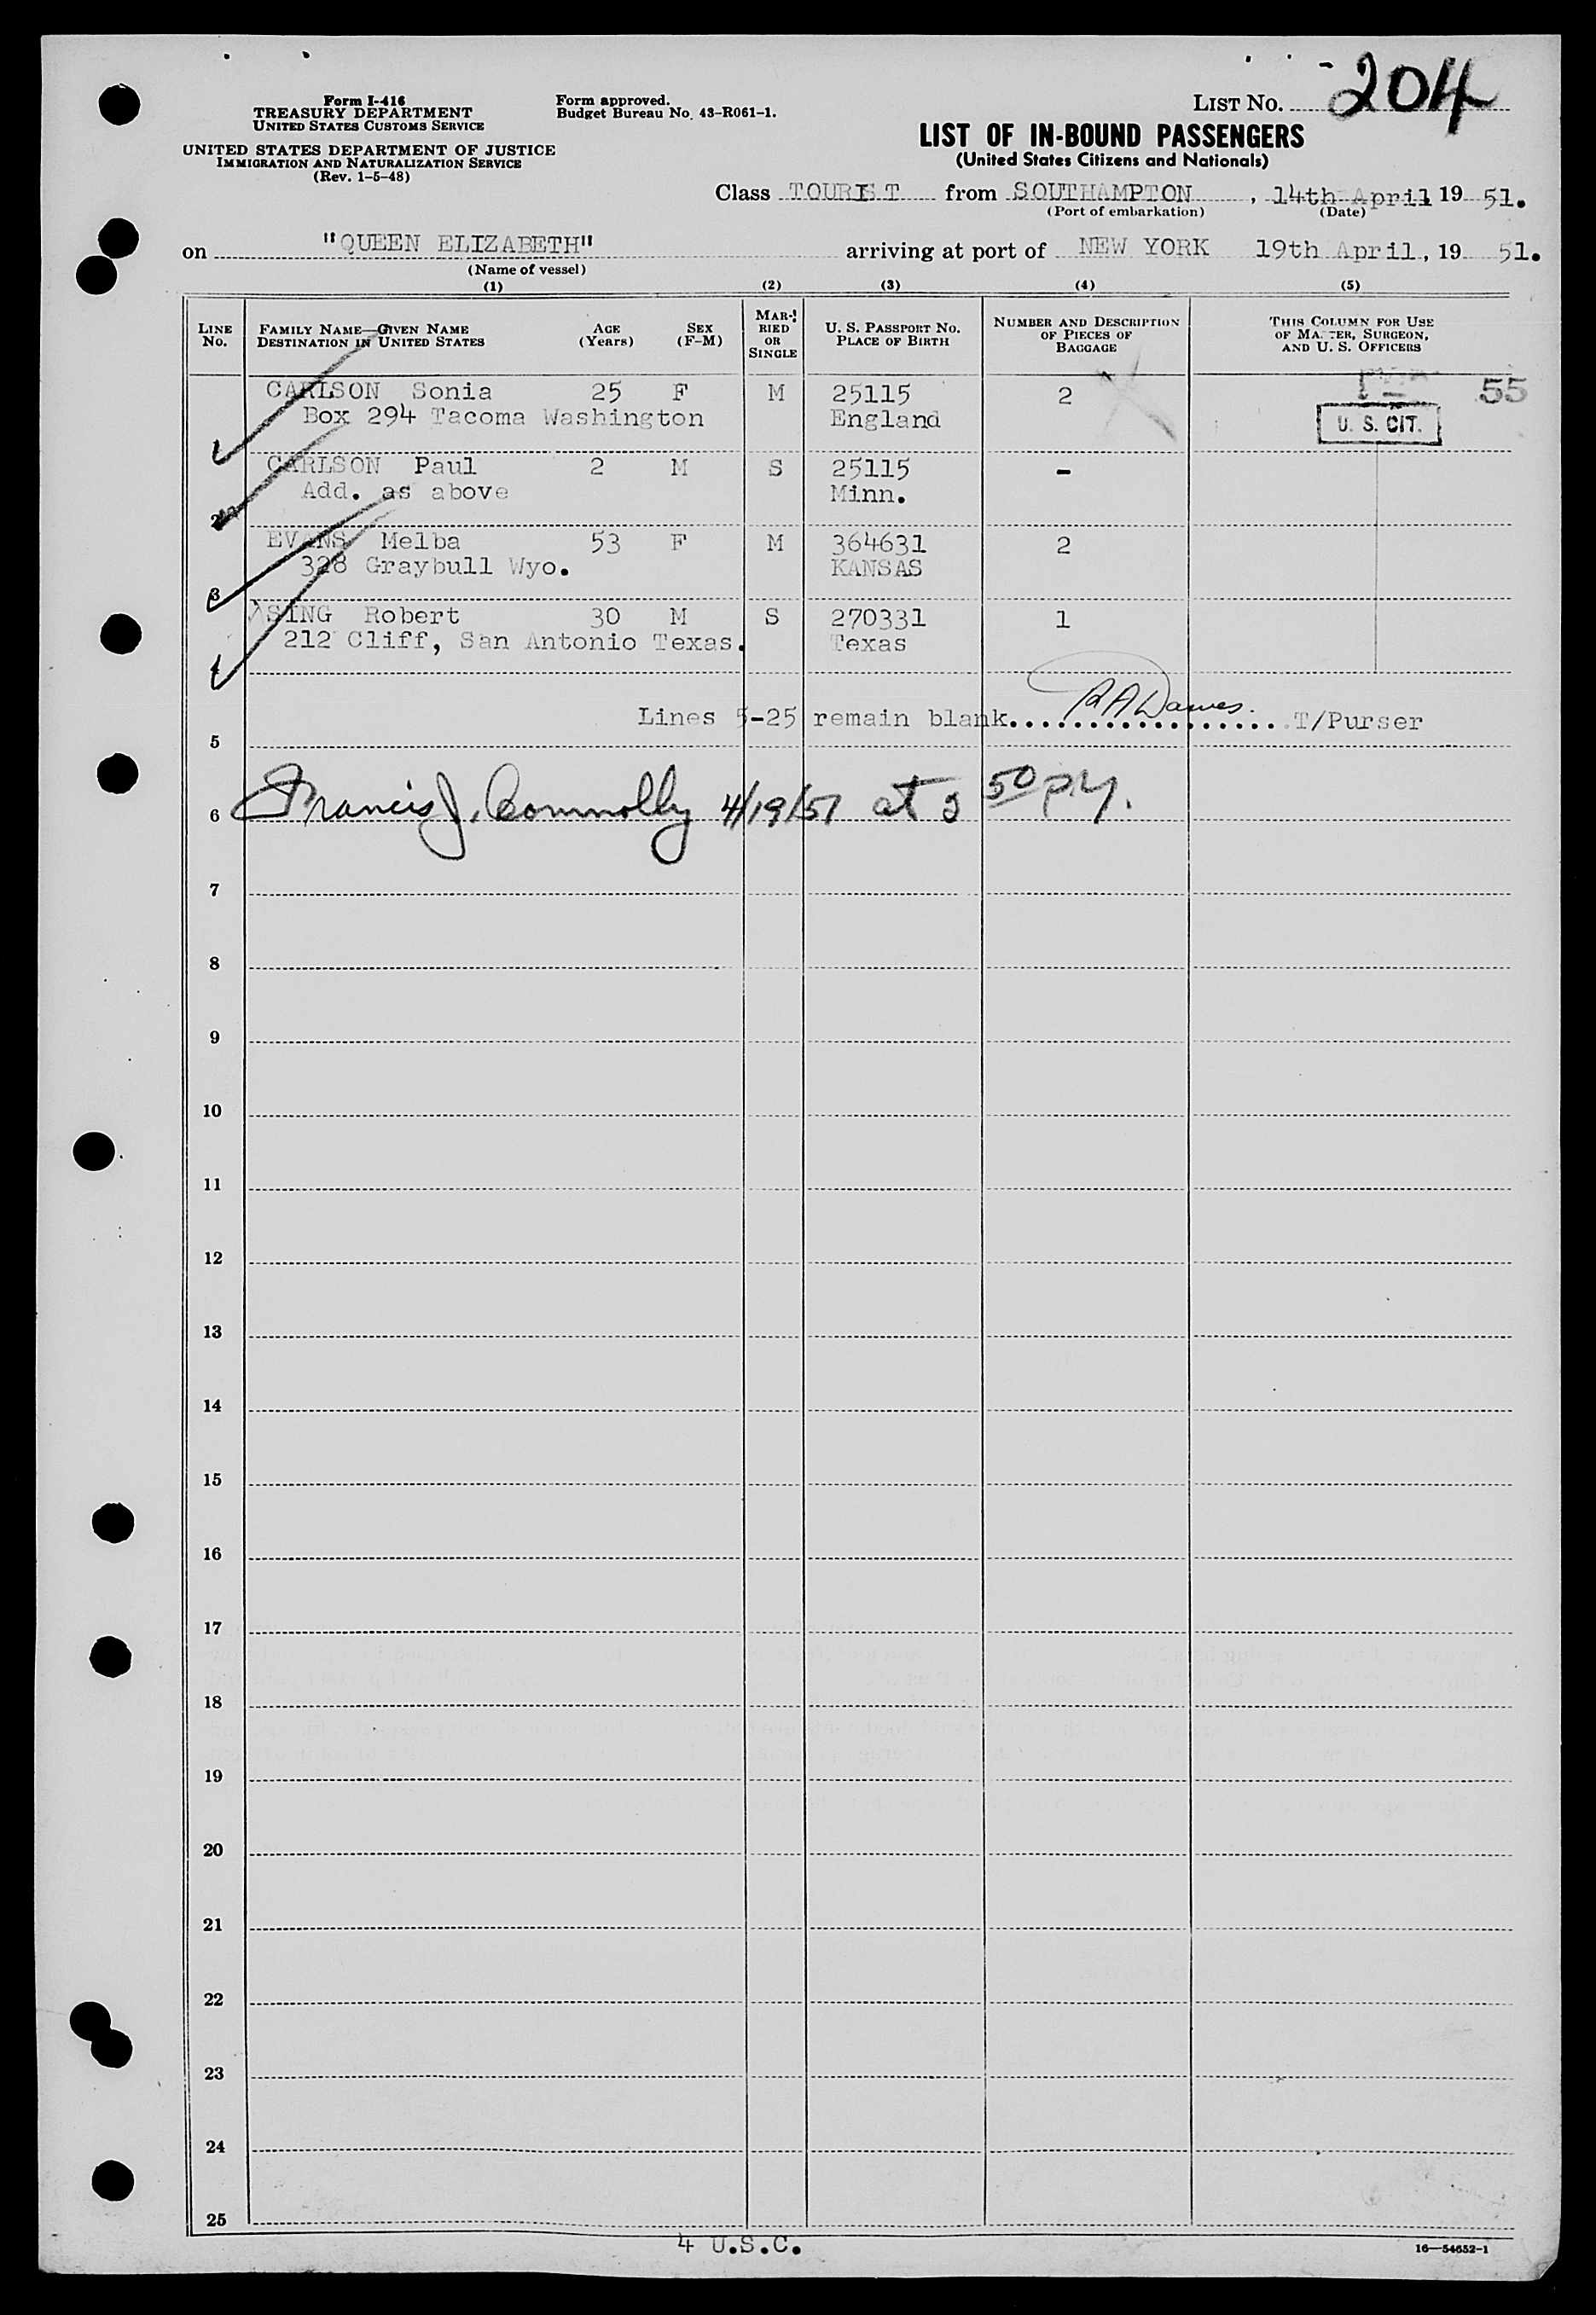 Form I-416
TREASURY DEPARTMENT
UNITED STATES CUSTOMS SERVICE
UNITED STATES DEPARTMENT OF JUSTICE
IMMIGRATION AND NATURALIZATION SERVICE
(Rev. 1-5-48)
Form approved.
Budget Bureau No. 43-R061-1.
LIST NO. 204
LIST OF IN-BOUND PASSENGERS
(United States Citizens and Nationals)
Class TOURIST from SOUTHAMPTON, 14th April 19 51.
(Port of embarkation) (Date)
on "QUEEN ELIZABETH" arriving at port of NEW YORK 19th April, 19 51.
(Name of vessel)
(1) (2) (3) (4) (5)
LINE NO. FAMILY NAME—GIVEN NAME DESTINATION IN UNITED STATES AGE (Years) SEX (F-M) MARRIED OR SINGLE U. S. PASSPORT NO. PLACE OF BIRTH NUMBER AND DESCRIPTION OF PIECES OF BAGGAGE THIS COLUMN FOR USE OF MASTER, SURGEON, AND U. S. OFFICERS
CARLSON Sonia 25 F M 25115 2 55
Box 294 Tacoma Washington England U. S. CIT.
1
CARLSON Paul 2 M S 25115 -
Add. as above Minn.
2
EVANS Melba 53 F M 364631 2
328 Graybull Wyo. KANSAS
3
SING Robert 30 M S 270331 1
212 Cliff, San Antonio Texas. Texas
4
Lines 5-25 remain blank.................. RADawes. T/Purser
5
6 Francis J. Connolly 4/19/51 at 3 50 P.M.
7
8
9
10
11
12
13
14
15
16
17
18
19
20
21
22
23
24
25
4 U.S.C.
16—54652-1